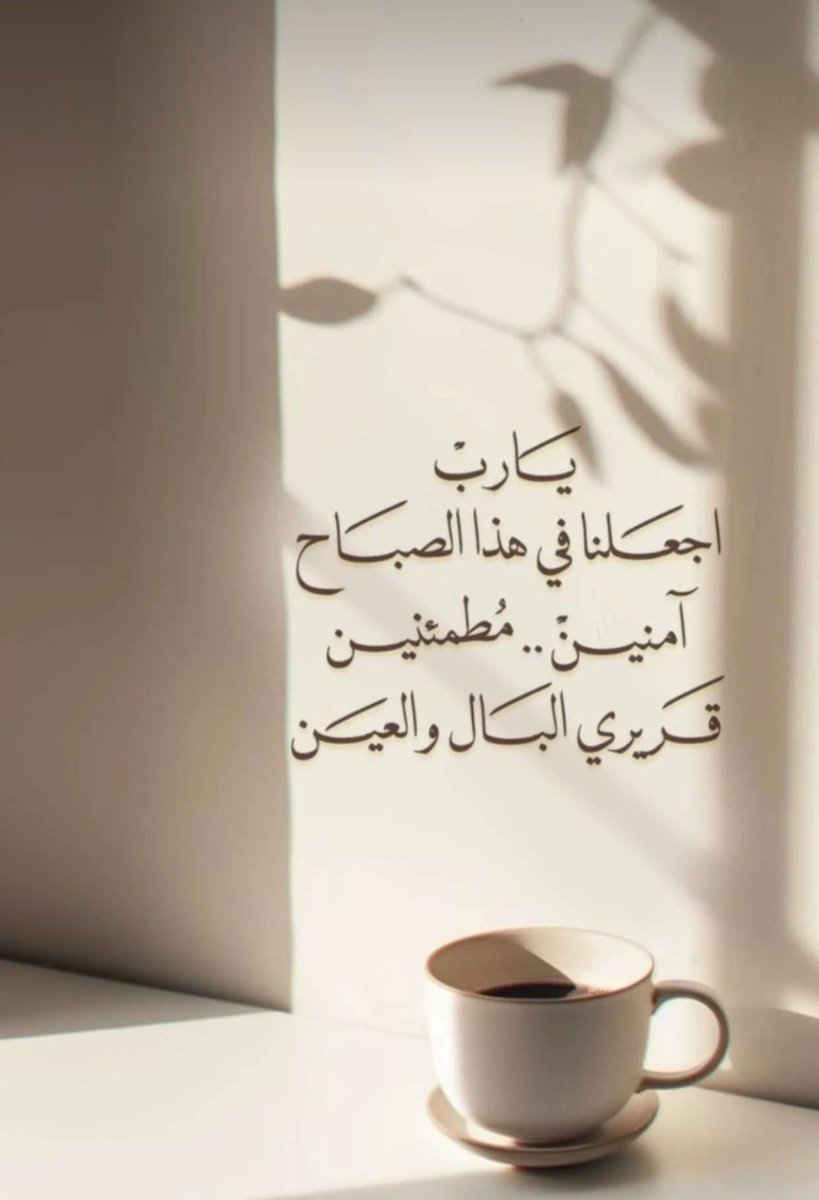 ياربْ
اجعلنا في هذا الصباح
آمنينْ .. مُطمئنين
قريري البال والعين